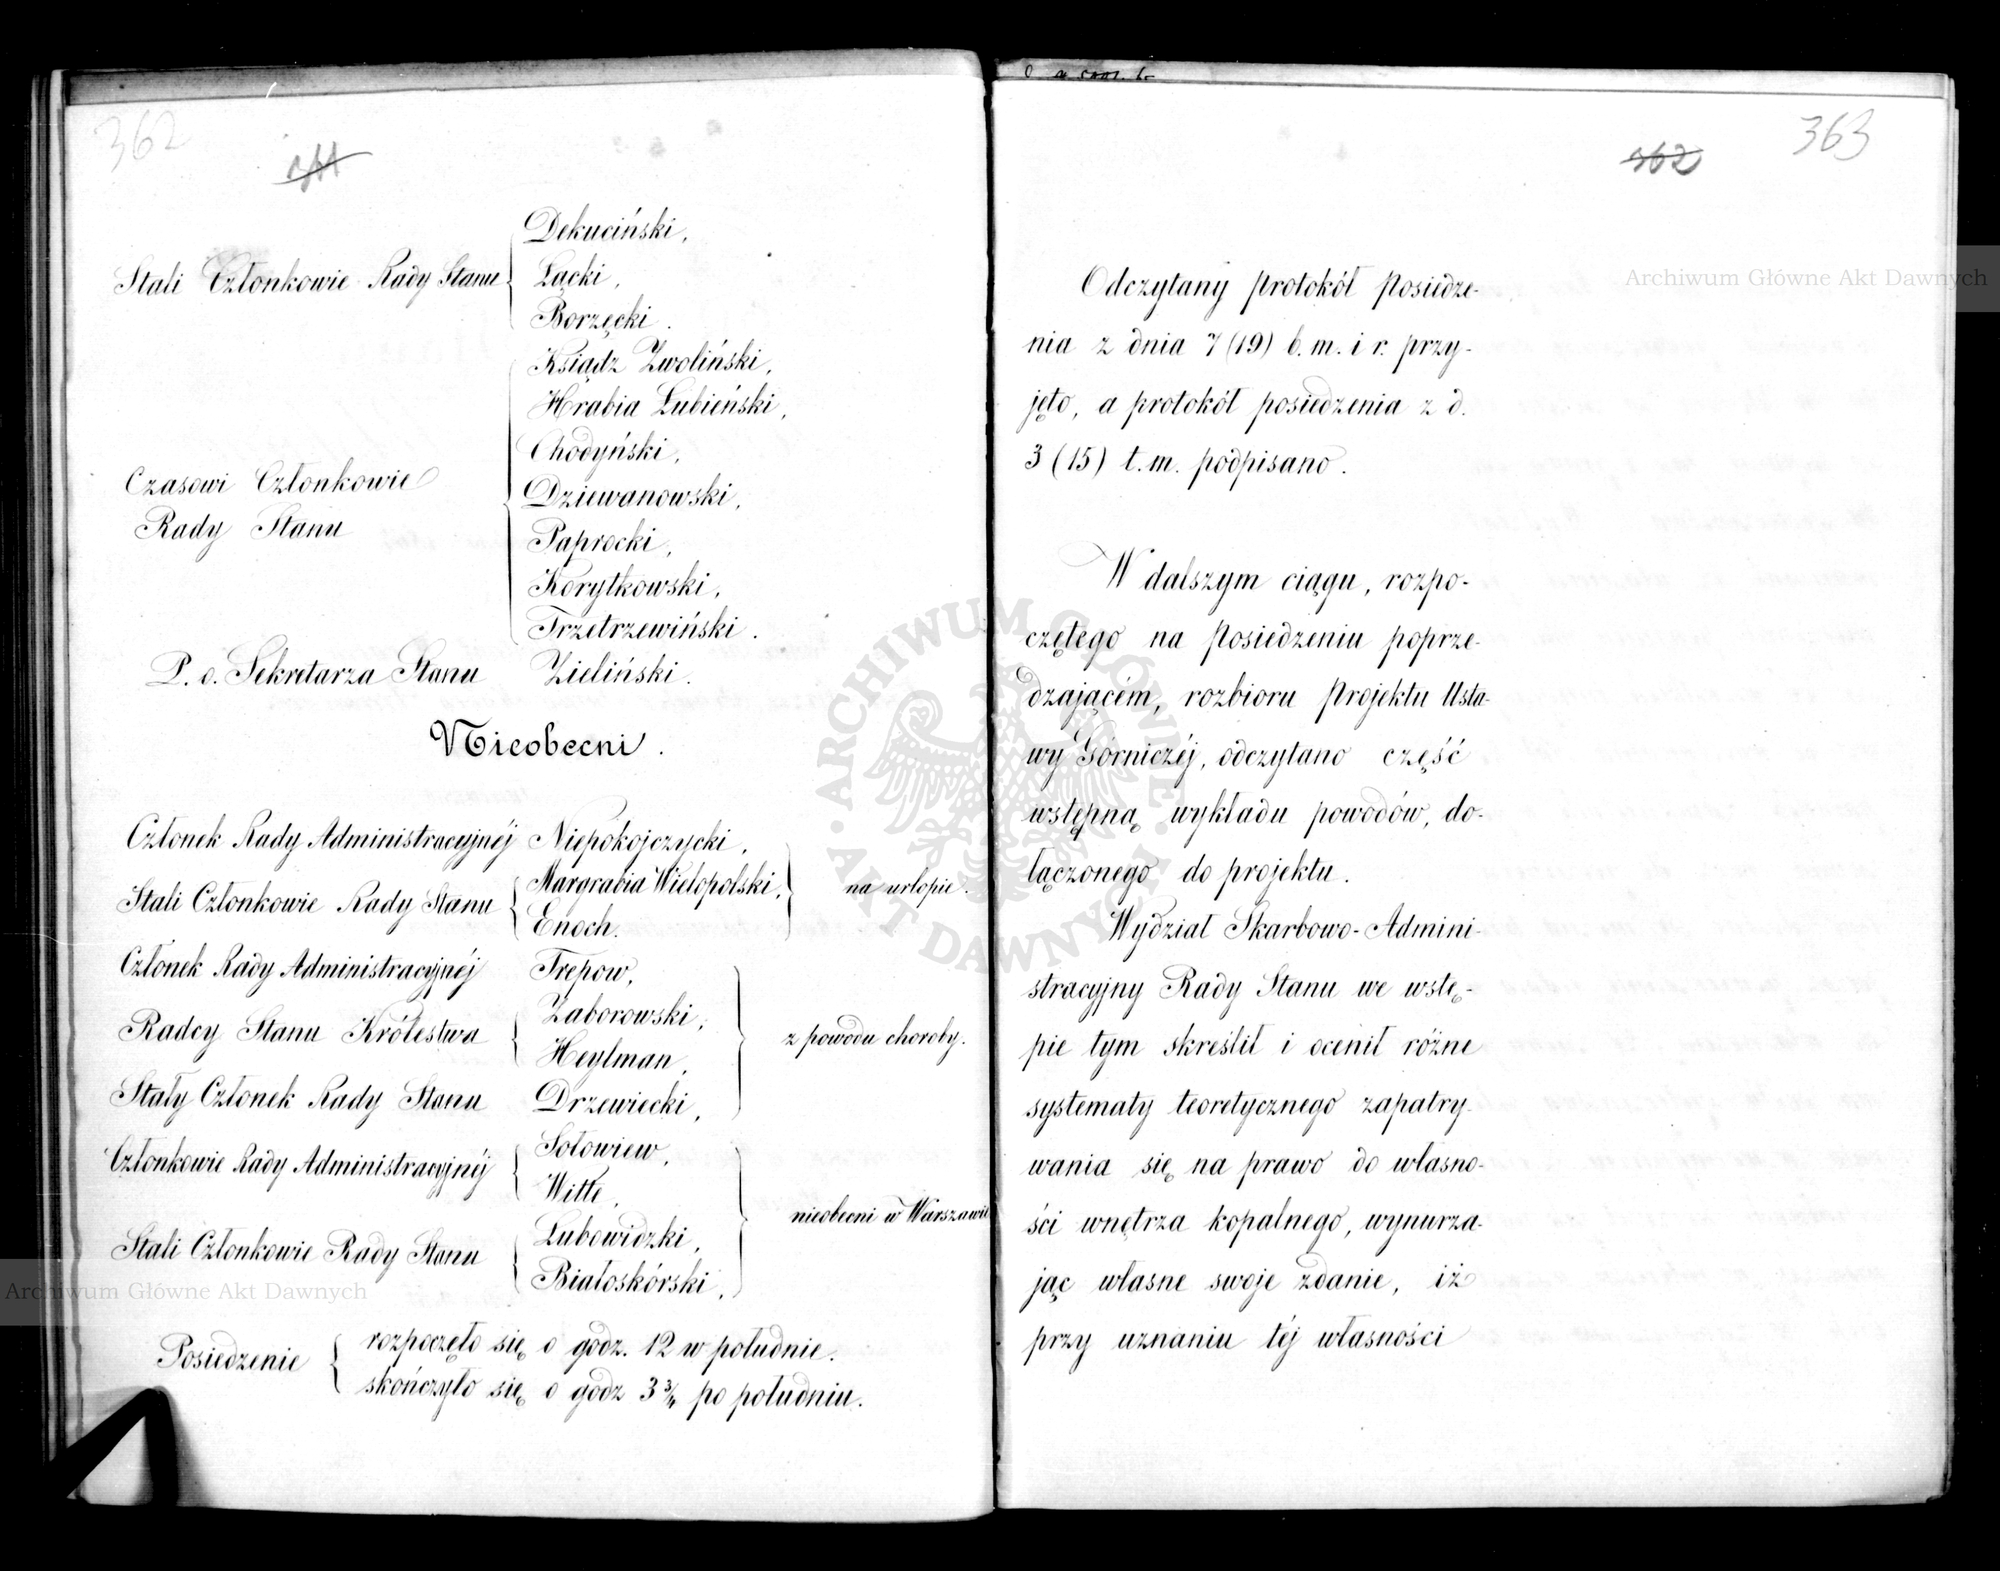 362
Stali Członkowie Rady Stanu
Dekuciński,
Łącki,
Borzęcki.
Czasowi Członkowie
Rady Stanu
Ksiądz Zwoliński,
Hrabia Łubieński,
Chodyński,
Dziewanowski,
Paprocki,
Korytkowski,
Trzetrzewiński.
P. o. Sekretarza Stanu Zieliński.
Nieobecni.
Członek Rady Administracyjnéj Niepokojczycki,
Stali Członkowie Rady Stanu
Margrabia Wielopolski,
Enoch.
na urlopie.
Członek Rady Administracyjnéj Trepow,
Radcy Stanu Królestwa
Zaborowski,
Heylman,
Stały Członek Rady Stanu Drzewiecki,
z powodu choroby.
Członkowie Rady Administracyjnéj
Sołowiew,
Witte,
Stali Członkowie Rady Stanu
Lubowidzki,
Białoskórski,
nieobecni w Warszawie
Posiedzenie
rozpoczęło się o godz. 12 w południe.
skończyło się o godz 3 3/4 po południu.
362
363
Odczytany protokół Posiedze-
nia z dnia 7 (19) b. m. i r. przy-
jęto, a protokół posiedzenia z d.
3 (15) t. m. podpisano.
W dalszym ciągu, rozpo-
czętego na Posiedzeniu poprze-
dzającém, rozbioru Projektu Usta-
wy Górniczéj, odczytano część
wstępną wykładu powodów, do-
łączonego do projektu.
Wydział Skarbowo-Admini-
stracyjny Rady Stanu we wstę-
pie tym skreślił i ocenił różne
systematy teoretycznego zapatry-
wania się na prawo do własno-
ści wnętrza kopalnego, wynurza-
jąc własne swoje zdanie, iż
przy uznaniu téj własności
Archiwum Główne Akt Dawnych
Archiwum Główne Akt Dawnych
ARCHIWUM GŁÓWNE · AKT DAWNYCH ·